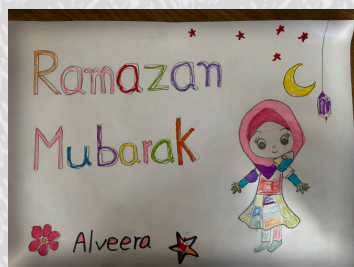 Ramazan
Mubarak
Alveera